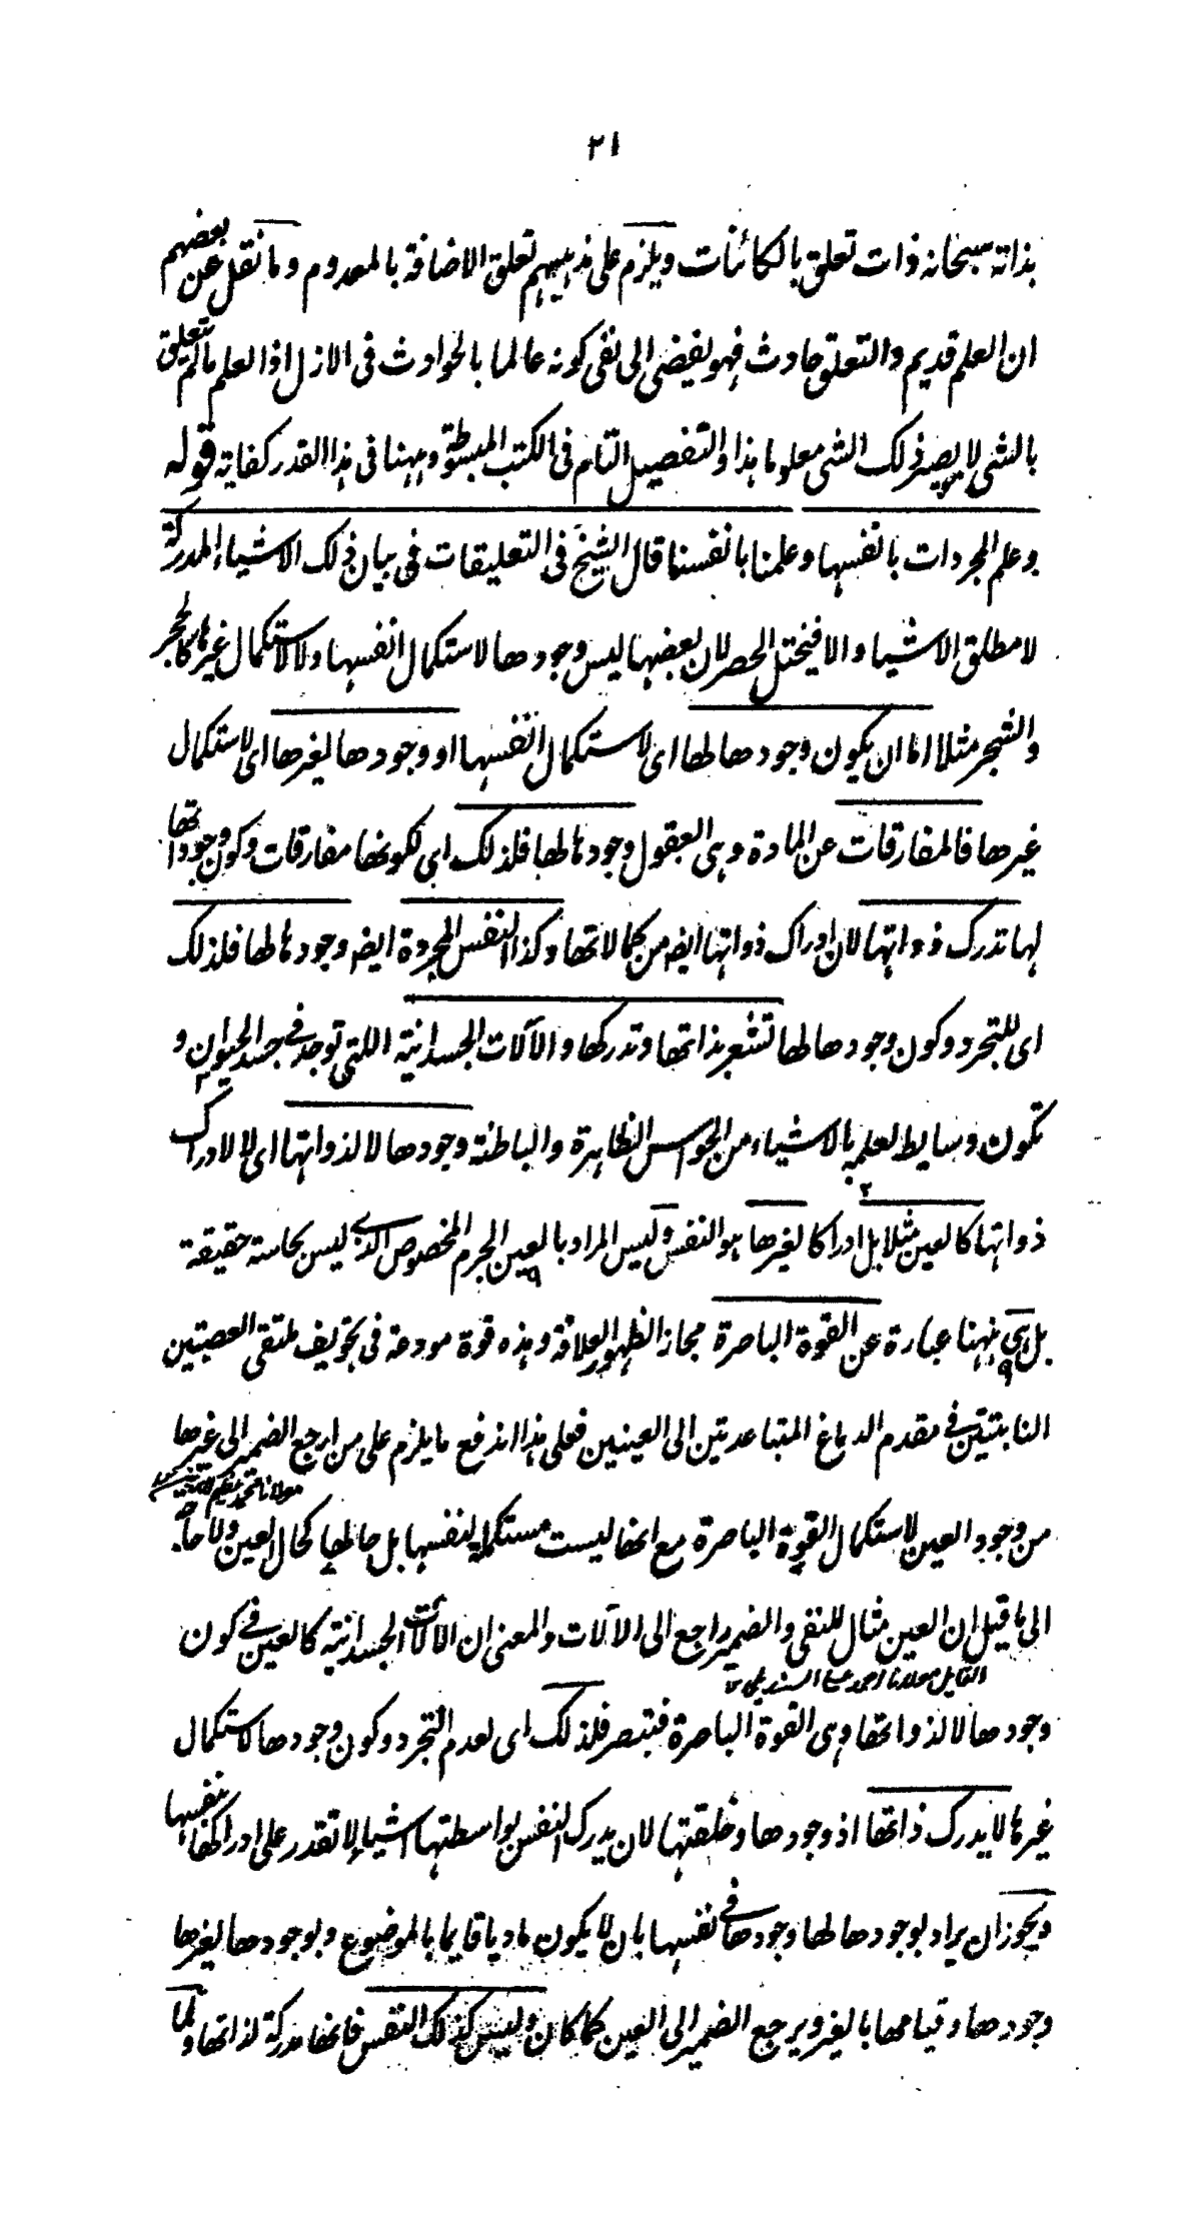 ٢١
بذاته سبحانه ذات تعلق بالكائنات ويلزم على مذهبهم تعلق الاضافة بالمعدوم وما نقل عن بعضهم
ان العلم قديم والتعلق حادث فهو يفضى الى نفى كونه عالما بالحوادث فى الازل اذا العلم مالم يتعلق
بالشى لا يصير ذلك الشى معلوما هذا والتفصيل التام فى الكتب المبسوطة وههنا فى هذا القدر كفاية قوله
وعلم المجردات بانفسها وعلمنا بانفسنا قال الشيخ فى التعليقات فى بيان ذلك الاشياء المدركة
لا مطلق الاشياء والا فيختل الحصر لان بعضها ليس وجودها لاستكمال انفسها ولا لاستكمال غيرها كالحجر
والشجر مثلا اما ان يكون وجودها لها اى لاستكمال انفسها او وجودها لغيرها اى لاستكمال
غيرها فالمفارقات عن المادة وهى العقول وجودها لها فلذلك اى لكونها مفارقات وكون وجوداتها
لها تدرك ذواتها لان ادراك ذواتها ايضا من كمالاتها وكذا النفس المجردة ايضا وجودها لها فلذلك
اى للتجرد وكون وجودها لها تشعر بذاتها وتدركها والآلات الجسدانية اللتى توجد فى جسد الحيوان و
تكون وسايط لعلمه بالاشياء من الحواس الظاهرة والباطنة وجودها لا لذواتها اى لا لادراك
ذواتها كالعين مثلا بل ادراكا لغيرها هو النفس وليس المراد بالعين الجرم المخصوص الذى ليس بحاسة حقيقة
بل هى ههنا عبارة عن القوة الباصرة مجازا لظهور العلاقة وهذه قوة مودعة فى تجويف ملتقى العصبتين
النابتتين فى مقدم الدماغ المتباعدتين الى العينين فعلى هذا اندفع ما يلزم على من ارجع الضمير الى غيرها
مولانا محمد
من وجود العين لاستكمال القوة الباصرة مع انها ليست مستكملة لنفسها بل حالها كحال العين ولا حاجة
الى ما قيل ان العين مثال للنفى والضمير راجع الى الآلات والمعنى ان الآلات الجسدانية كالعين فى كون
القايل مولانا احمد السنديلى
وجودها لا لذواتها وهى القوة الباصرة فتبصر فلذلك اى لعدم التجرد وكون وجودها لاستكمال
غيرها لا يدرك ذاتها اذ وجودها وخلقتها لان يدرك النفس بواسطتها اشياء لا تقدر على ادراكها بنفسها
ويجوز ان يراد بوجودها لها وجودها فى نفسها بان لا يكون ماديا قايما بالموضوع وبوجودها لغيرها
وجودها وقيامها بالغير ويرجع الضمير الى العين كما كان وليس كذلك النفس فانها مدركة لذاتها ولما